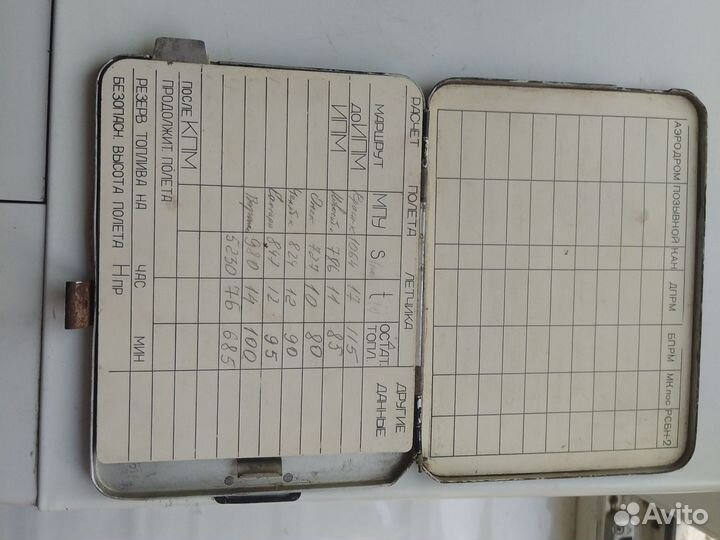 АЭРОДРОМ ПОЗЫВНОЙ КАН ДПРМ БПРМ МК пос РСБН-2
РАСЧЕТ ПОЛЕТА ЛЕТЧИКА
МАРШРУТ МПУ S t ОСТАТ. ТОПЛ. ДРУГИЕ ДАННЫЕ
ДО ИПМ 1064 17 115
ИПМ 786 11 85
727 10 80
824 12 90
12 95
980 14 100
5230 76 685
ПОСЛЕ КПМ
ПРОДОЛЖИТ ПОЛЕТА
РЕЗЕРВ ТОПЛИВА НА ЧАС МИН
БЕЗОПАСН. ВЫСОТА ПОЛЕТА Н ПР
Avito